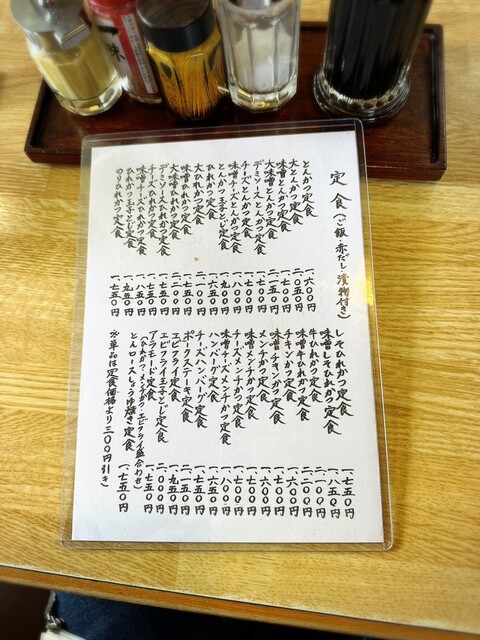 定食(ご飯・赤だし・漬物付き)
とんかつ定食 一、六〇〇円
大とんかつ定食 二、〇五〇円
味噌とんかつ定食 一、七〇〇円
大味噌とんかつ定食 二、一五〇円
デミソースとんかつ定食 一、七〇〇円
チーズとんかつ定食 一、七〇〇円
味噌チーズとんかつ定食 一、八〇〇円
とんかつ玉子とじ定食 一、九〇〇円
ひれかつ定食 一、六五〇円
大ひれかつ定食 二、一〇〇円
味噌ひれかつ定食 一、七五〇円
大味噌ひれかつ定食 二、二〇〇円
デミソースひれかつ定食 一、七五〇円
チーズひれかつ定食 一、七五〇円
味噌チーズひれかつ定食 一、八五〇円
ひれかつ玉子とじ定食 一、九五〇円
のりひれかつ定食 一、七五〇円
しそひれかつ定食 一、七五〇円
味噌しそひれかつ定食 一、八五〇円
牛ひれかつ定食 二、一〇〇円
味噌牛ひれかつ定食 二、二〇〇円
チキンかつ定食 一、六〇〇円
味噌チキンかつ定食 一、七〇〇円
メンチかつ定食 一、六〇〇円
味噌メンチかつ定食 一、七〇〇円
チーズメンチかつ定食 一、七〇〇円
味噌チーズメンチかつ定食 一、八〇〇円
ハンバーグ定食 一、六〇〇円
チーズハンバーグ定食 一、七五〇円
ポークステーキ定食 二、一五〇円
エビフライ定食 一、九五〇円
エビフライ玉子とじ定食 二、〇〇〇円
アラモード定食 一、七五〇円
(ひれかつ・メンチかつ・エビフライ盛合わせ)
とんロースしょうゆ焼き定食 一、七五〇円
※単品は定食価格より三〇〇円引き
一味